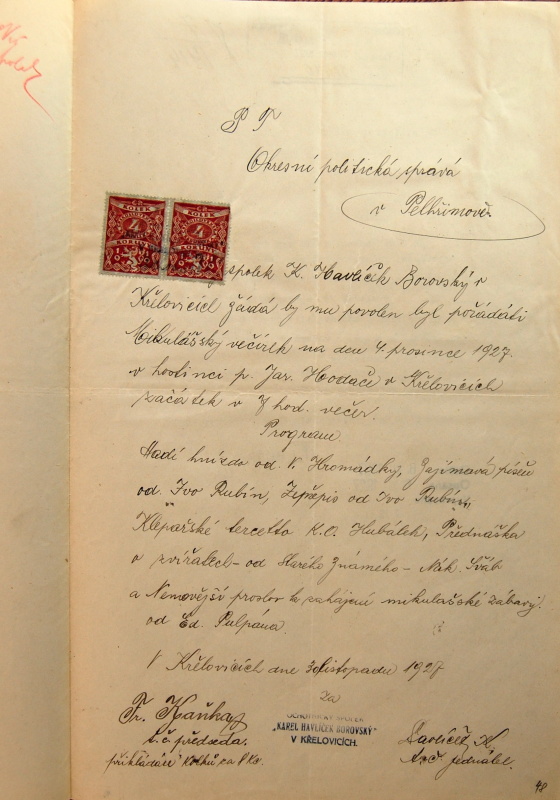 P T
Okresní politická správa
v Pelhřimově.
spolek K. Havlíček Borovský v
Křelovicích žádá by mu povolen byl pořádati
Mikulášský večírek na den 4. prosince 1927.
v hostinci p. Jar. Hodače v Křelovicích
začátek v 7 hod. večer.
Program.
Hadí hnízdo od V. Hromádky, Zajímavá
od Ivo Rubín, od Ivo Rubín,
Klepařské tercetto K.O. Hubálek, Přednáška
o zvířatech - od Starého Známého - Nák. Šváb
a Nejnovější proslov k zahájení mikulašské zábavy
od Ed. Pulpána.
V Křelovicích dne listopadu 1927
Za
Fr. Kaňka
t.č. předseda.
OCHOTNICKÝ SPOLEK
„KAREL HAVLÍČEK BOROVSKÝ"
V KŘELOVICÍCH.
Havlíček K
t.č. jednatel.
přikládáme Kolků za 8 Kč.
48
KOLEK
4
KORUNY
KOLEK
4
KORUNY